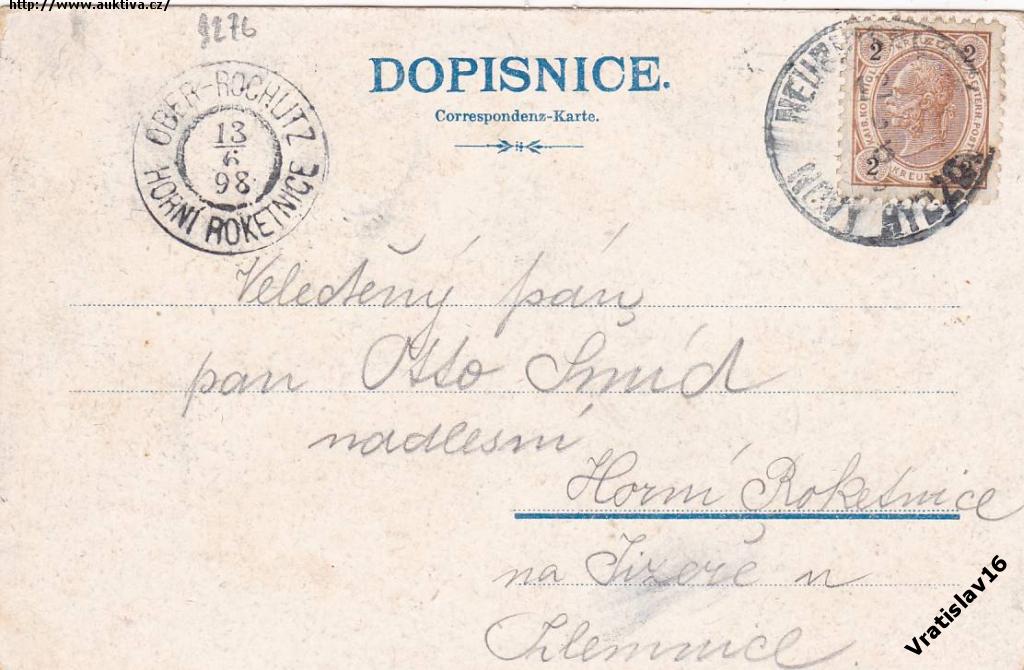 http://www.auktiva.cz/
9276
DOPISNICE.
Correspondenz-Karte.
OBER-ROCHLITZ
13
6
98
HORNÍ ROKETNICE
2 2
2 2
KREUZER
Veleděný pán,
pan Otto Šmíd
nadlesní
Horní Roketnice
na Jizeře u
Jilemnice
Vratislav16